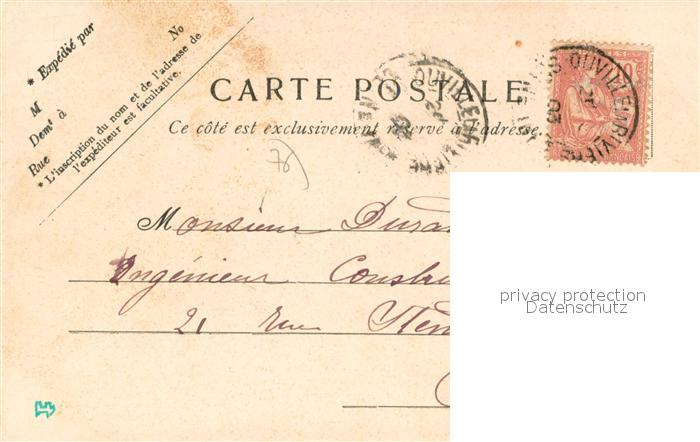 * Expédié par
M
Dem.t à
Rue
No
* L'inscription du nom et de l'adresse de
l'expéditeur est facultative.
CARTE POSTALE
Ce côté est exclusivement réservé à l'adresse.
76
Monsieur
Ingénieur
21 rue
privacy protection
Datenschutz